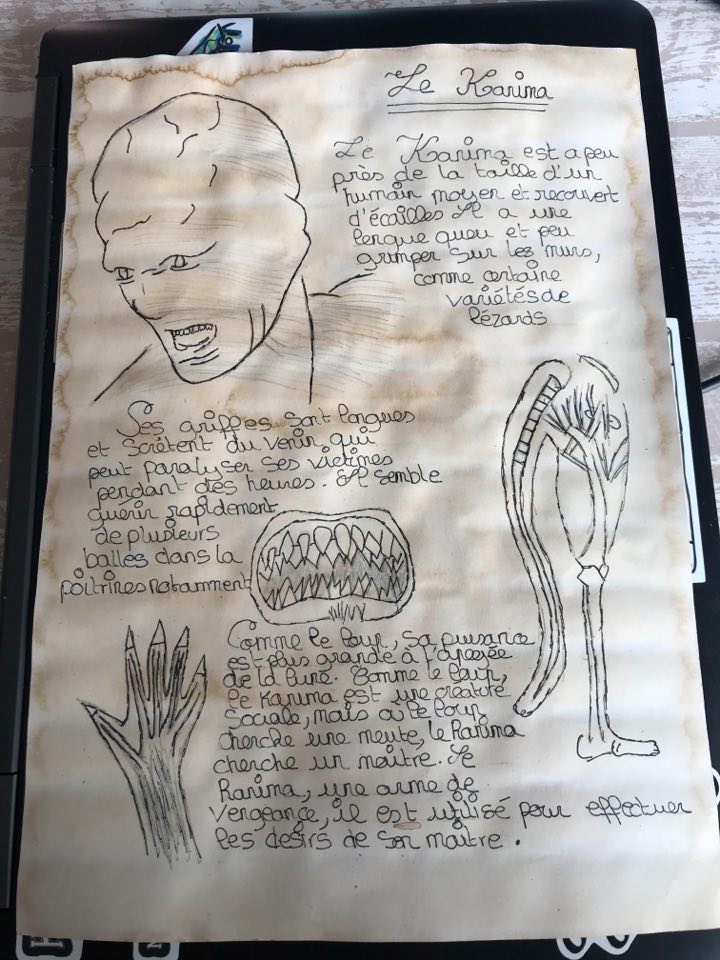 Le Kanima
Le Kanima est a peu
près de la taille d'un
humain moyen et recouvert
d'écailles Il a une
longue queu et peu
grimper sur les murs,
comme certaine
variétés de
lézards
Ses griffes sont longues
et scrètent du venin qui
peut paralyser ses victimes
pendant des heures. Il semble
guerir rapidement
de plusieurs
balles dans la
poitrines notamment
Comme le loup, sa puisance
est plus grande à l'apogée
de la lune. Comme le loup,
le Kanima est une créature
sociale, mais où le loup
cherche une meute, le Kanima
cherche un maitre. Le
Kanima, une arme de
vengeance, il est utilisé pour effectuer
les desirs de son maitre.